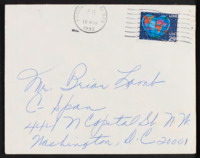 LOVE
Mr. Brian Lamb
C Span
444 N Capitol St. N W
Washington, D.C. 20001